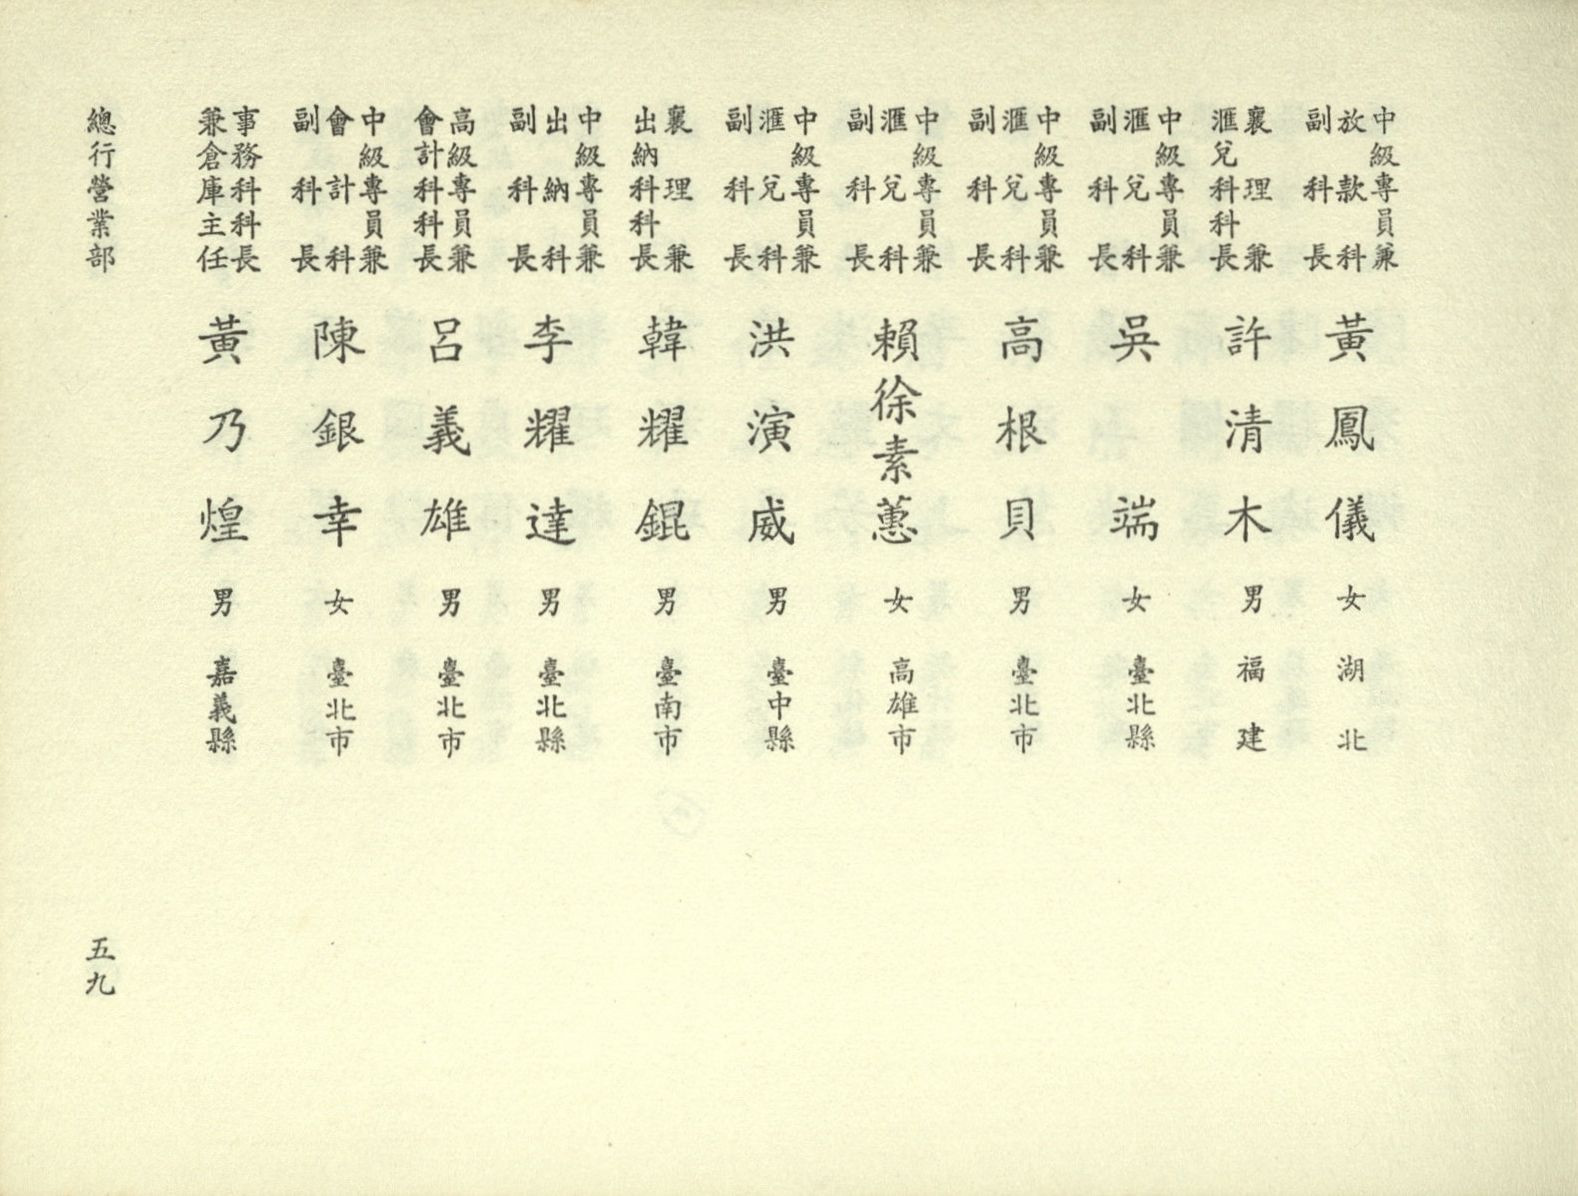 中級專員兼
放款科
副科長
黃鳳儀 女 湖北
襄理兼
滙兌科科長
許清木 男 福建
中級專員兼
滙兌科
副科長
吳端 女 臺北縣
中級專員兼
滙兌科
副科長
高根貝 男 臺北市
中級專員兼
滙兌科
副科長
賴徐素蕙 女 高雄市
中級專員兼
滙兌科
副科長
洪演威 男 臺中縣
襄理兼
出納科科長
韓耀錕 男 臺南市
中級專員兼
出納科
副科長
李耀達 男 臺北縣
高級專員兼
會計科科長
呂義雄 男 臺北市
中級專員兼
會計科
副科長
陳銀幸 女 臺北市
事務科科長
兼倉庫主任
黃乃煌 男 嘉義縣
總行營業部
五九